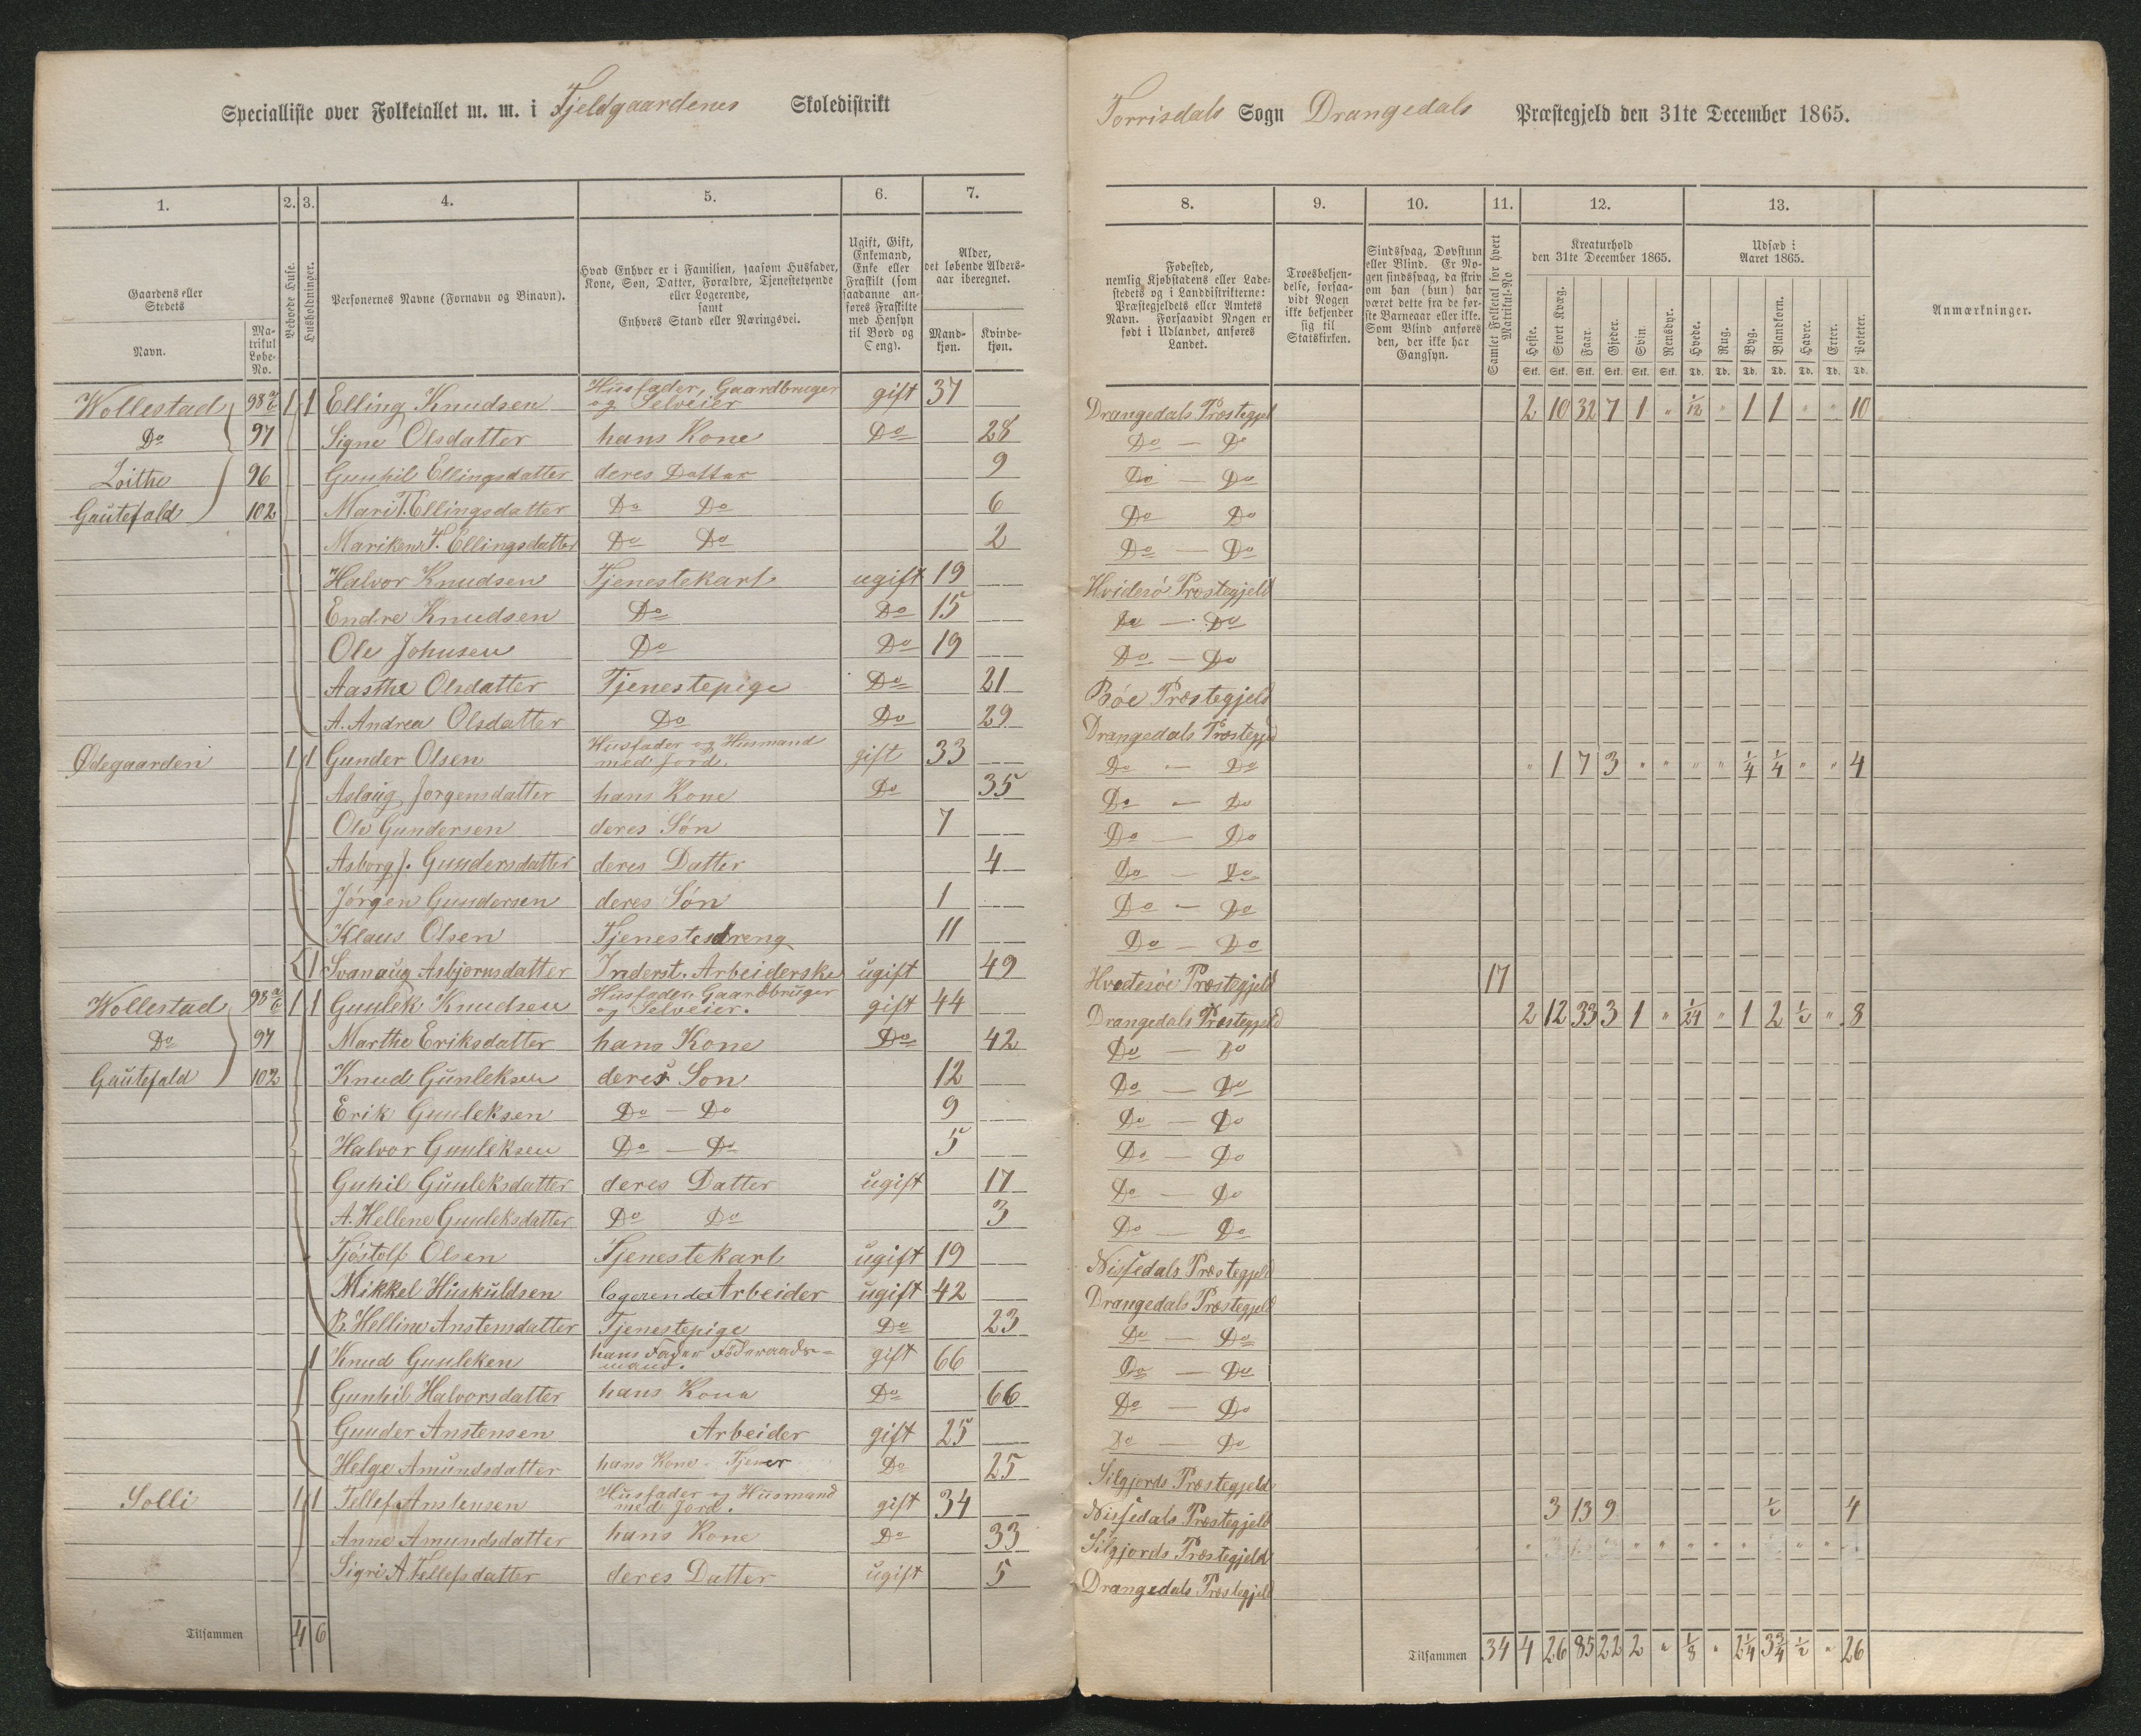 Specialliste over Folketallet m. m. i Fjeldgaardenes Skoledistrikt
Torrisdals Sogn Drangedals Præstegjeld den 31te December 1865.
1. 2. 3. 4. 5. 6. 7. 8. 9. 10. 11. 12. 13.
Gaardens eller Stedets
Navn.
Matrikul Løbe-No.
Beboede Huse.
Husholdninger.
Personernes Navne (Fornavn og Binavn).
Hvad Enhver er i Familien, saasom Husfader, Kone, Søn, Datter, Forældre, Tjenestetyende eller Logerende, samt Enhvers Stand eller Næringsvei.
Ugift, Gift, Enkemand, Enke eller Fraskilt (som saadanne anføres Fraskilte med Hensyn til Bord og Seng).
Alder, det løbende Alders-aar iberegnet.
Mand-kjøn.
Kvinde-kjøn.
Fødested, nemlig Kjøbstadens eller Lade-stedets og i Landdistrikterne: Præstegjeldets eller Amtets Navn. Forsaavidt Nogen er født i Udlandet, anføres Landet.
Troesbekjen-delse, forsaa-vidt Nogen ikke bekjender sig til Statskirken.
Sindssvag, Døvstum eller Blind. Er No-gen sindssvag, da skriv om han (hun) har været dette fra de før-ste Barneaar eller ikke. Som Blind anføres den, der ikke har Gangsyn.
Samlet Folketal for hvert Matrikul-No
Kreaturhold den 31te December 1865.
Heste. Stort Kvæg. Faar. Gjeder. Svin. Rensdyr.
Stk. Stk. Stk. Stk. Stk. Stk.
Udsæd i Aaret 1865.
Hvede. Rug. Byg. Blandkorn. Havre. Erter. Poteter.
Td. Td. Td. Td. Td. Td. Td.
Anmærkninger.
Wollestad 98 1 1 Elling Knudsen Husfader, Gaardbruger og Selveier gift 37 Drangedals Præstegjel 2 10 32 7 1 " 1/12 " 1 1 " " 10
Do 97 Signe Olsdatter hans Kone Do 28 Do — Do
Loithe 96 Gunhil Ellingsdatter deres Datter 9 Do — Do
Gautefald 102 Mari T. Ellingsdatter Do Do 6 Do Do
Mariken T. Ellingsdatter Do Do 2 Do — Do
Halvor Knudsen Tjenestekarl ugift 19 Hvidesø Præstegjeld
Endre Knudsen Do Do 15 Do — Do
Ole Johnsen Do Do 19 Do — Do
Aasthe Olsdatter Tjenestepige Do 21 Bøe Præstegjeld
A. Andrea Olsdatter Do Do 29 Drangedals Præstegjed
Ødegaarden 1 1 Gunder Olsen Husfader og Husmand med Jord. gift 33 Do — Do " 1 7 3 " " " " 1/4 1/4 " " 4
Aslaug Jørgensdatter hans Kone Do 35 Do — Do
Ole Gundersen deres Søn 7 Do — Do
Asborg J. Gundersdatter deres Datter 4 Do — Do
Jørgen Gundersen deres Søn 1 Do — Do
Klaus Olsen Tjenestedreng 11 Do — Do
1 Svanaug Asbjørnsdatter Inderst. Arbeiderske ugift 49 Hvedesøe Præstegjeld 17
Wollestad 98 1 1 Gunlek Knudsen Husfader, Gaardbruger og Selveier. gift 44 Drangedals Præstegjeld 2 12 33 3 1 " 1/24 " 1 2 1/2 " 8
Do 97 Marthe Eriksdatter hans Kone Do 42 Do — Do
Gautefald 102 Knud Gunleksen deres Søn 12 Do — Do
Erik Gunleksen Do — Do 9 Do — Do
Halvor Gunleksen Do — Do 5 Do — Do
Guhil Gunleksdatter deres Datter ugift 17 Do — Do
A. Hellene Gunleksdatter Do Do 3 Do — Do
Tjøstolf Olsen Tjenestekarl ugift 19 Nissedals Præstegjeld
Mikkel Huskuldsen logerende Arbeider ugift 42 Drangedals Præstegjeld
B. Helline Anstensdatter Tjenestepige Do 23 Do — Do
1 Knud Gunleken hans Fader Föderaads-mand. gift 66 Do — Do
Gunhil Halvorsdatter hans Kone Do 66 Do — Do
Gunder Anstensen Arbeider gift 25 Do — Do
Helge Amundsdatter hans Kone - Tjener Do 25 Silgjords Præstegjeld
Solli 1 1 Tellef Anstensen Husfader og Husmand med Jord. gift 34 Nissedals Præstegjeld 3 13 9 1/2 4
Anne Amundsdatter hans Kone Do 33 Silgjords Præstegjeld
Sigri A Tellefsdatter deres Datter ugift 5 Drangedals Præstegjeld
Tilsammen 4 6
Tilsammen 34 4 26 85 22 2 " 1/8 " 2 1/4 3 3/4 1/2 " 26